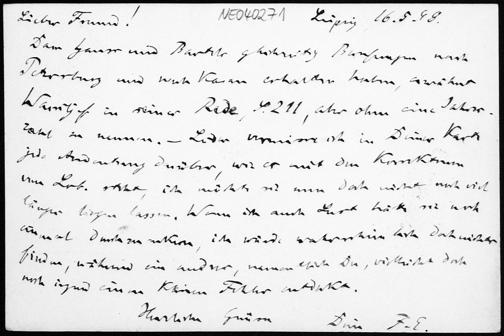 Lieber Freund! NE040271 Leipzig 16.5.98.
Dass Gauss und Bartels gleichzeitig Berufungen nach
Petersburg und nach Kasan erhalten haben, erwähnt
Wassiljef in seiner Rede, S. 211, aber ohne eine Jahres-
zahl zu nennen. — Leider vermisse ich in Deiner Karte
jede Andeutung darüber, wie es mit den Korrekturen
vom Lob. steht, ich möchte sie nun doch nicht noch viel
länger liegen lassen. Wenn ich auch Lust hätte sie noch
einmal durchzusehen, ich würde wahrscheinlich doch nichts
finden, während ein andrer, namentlich Du, vielleicht doch
noch irgend einen kleinen Fehler entdeckt.
Herzliche Grüsse Dein F. E.